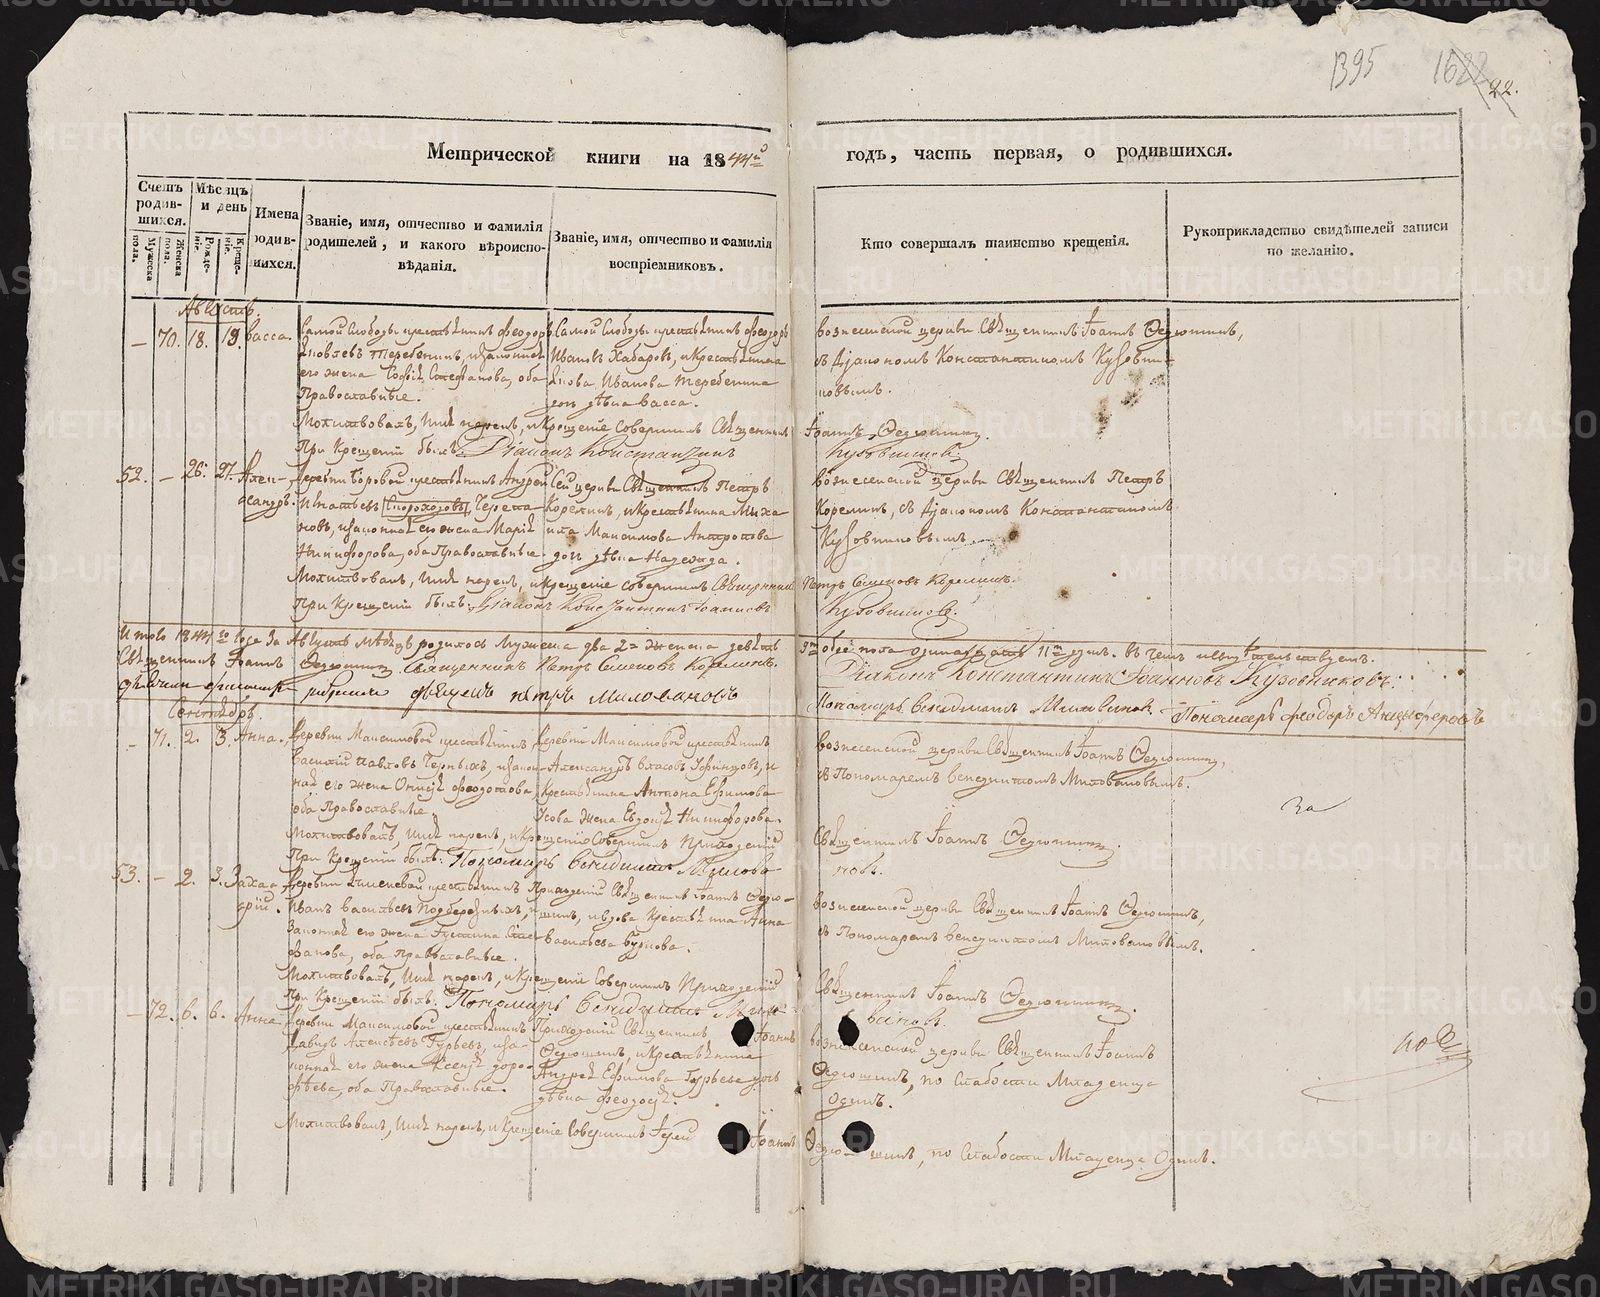 1395
22.
Метрической книги на 1844й годъ, часть первая, о родившихся.
Счетъ родившихся.
Мужеска пола.
Женска пола.
Мѣсяцъ и день
Рожденія.
Крещенія.
Имена родившихся.
Званіе, имя, отчество и фамилія родителей, и какого вѣроисповѣданія.
Званіе, имя, отчество и фамилія воспріемниковъ.
Кто совершалъ таинство крещенія.
Рукоприкладство свидѣтелей записи по желанію.
Августъ.
70. 18. 19. Васса.
Самой Слободы крестьянинъ Феодоръ
Яковлевъ Теребенинъ, и законная
его жена Софія Стефанова, оба
Православные.
Самой Слободы крестьянинъ Феодоръ
Ивановъ Хабаровъ, и крестьянина
Якова Иванова Теребенина
дочь дѣвица Васса.
Вознесенской церкви Священникъ Іоаннъ Ѳедюшинъ,
съ Діакономъ Константиномъ Кузовни-
ковымъ.
Молитвовалъ, имя нарекъ, и крещеніе совершилъ Священникъ Іоаннъ Ѳедюшинъ.
При Крещеніи былъ Діаконъ Константинъ Кузовниковъ.
52. 26. 27. Алек-
сандръ.
Деревни Боровой крестьянинъ Андрей
Игнатьевъ Черепа-
новъ, и законная его жена Марія
Никифорова, оба Православные.
Сей церкви Священникъ Петръ
Корелинъ, и крестьянина Миха
ила Максимова Антропова
дочь дѣвица Надежда.
Вознесенской церкви Священникъ Петръ
Корелинъ, съ Діакономъ Константиномъ
Кузовниковымъ.
Молитвовалъ, имя нарекъ, и крещеніе совершилъ Священникъ Петръ Симеоновъ Корелинъ.
При Крещеніи былъ Діаконъ Константинъ Іоанновъ Кузовниковъ.
Итого 1844го года за Августъ мѣсяцъ родилось Мужеска два 2= Женска девять 9ть обоего пола одинадцать 11ть душъ. Въ чемъ и свидѣтельствуемъ.
Священникъ Іоаннъ Ѳедюшинъ. Священникъ Петръ Симеоновъ Корелинъ. Діаконъ Константинъ Іоанновъ Кузовниковъ.
Петръ Миловановъ Пономарь Венидиктъ Миловановъ. Пономарь Феодоръ Анцыферовъ
Сентябрь.
71. 2. 3. Анна.
Деревни Максимовой крестьянинъ
Василій Павловъ Черныхъ, и закон-
ная его жена Ѳеодотова,
оба Православные.
Деревни Максимовой крестьянинъ
Александръ Власовъ и
Крестьянина Антона Ефимова
Усова жена Евдокія Никифорова.
Вознесенской церкви Священникъ Іоаннъ Ѳедюшинъ,
съ Пономаремъ Венедиктомъ Миловановымъ.
за
Молитвовалъ, имя нарекъ, и крещеніе совершилъ Приходскій Священникъ Іоаннъ Ѳедюшинъ.
При Крещеніи былъ: Пономарь Венидиктъ Милова-
новъ.
53. 2. 3. Заха-
рій.
Деревни крестьянинъ
Иванъ Васильевъ Подберезныхъ, и
законная его жена Сте-
фанова, оба Православные.
Приходскій Священникъ Іоаннъ Ѳедю-
шинъ, и вдова Крестьянка Анна
Васильева
Вознесенской церкви Священникъ Іоаннъ Ѳедюшинъ,
съ Пономаремъ Венедиктомъ Миловановымъ.
Молитвовалъ, имя нарекъ, и крещеніе совершилъ Приходскій Священникъ Іоаннъ Ѳедюшинъ.
При Крещеніи былъ: Пономарь Венидиктъ Мило-
вановъ.
72. 6. 6. Анна
Деревни Максимовой крестьянинъ
Давидъ Алексѣевъ Гурьевъ, и за-
конная его жена Ксенія Доро-
фѣева, оба Православные.
Приходскій Священникъ Іоаннъ
Ѳедюшинъ, и крестьянина
Андрея Ефимова Гурьева дочь
дѣвица Феодосія.
Вознесенской церкви Священникъ Іоаннъ
Ѳедюшинъ, по слабости Младенца
одинъ.
Молитвовалъ, имя нарекъ, и Крещеніе Совершилъ Іерей Іоаннъ Ѳедюшинъ, по слабости Младенца одинъ.
METRIKI.GASO-URAL.RU